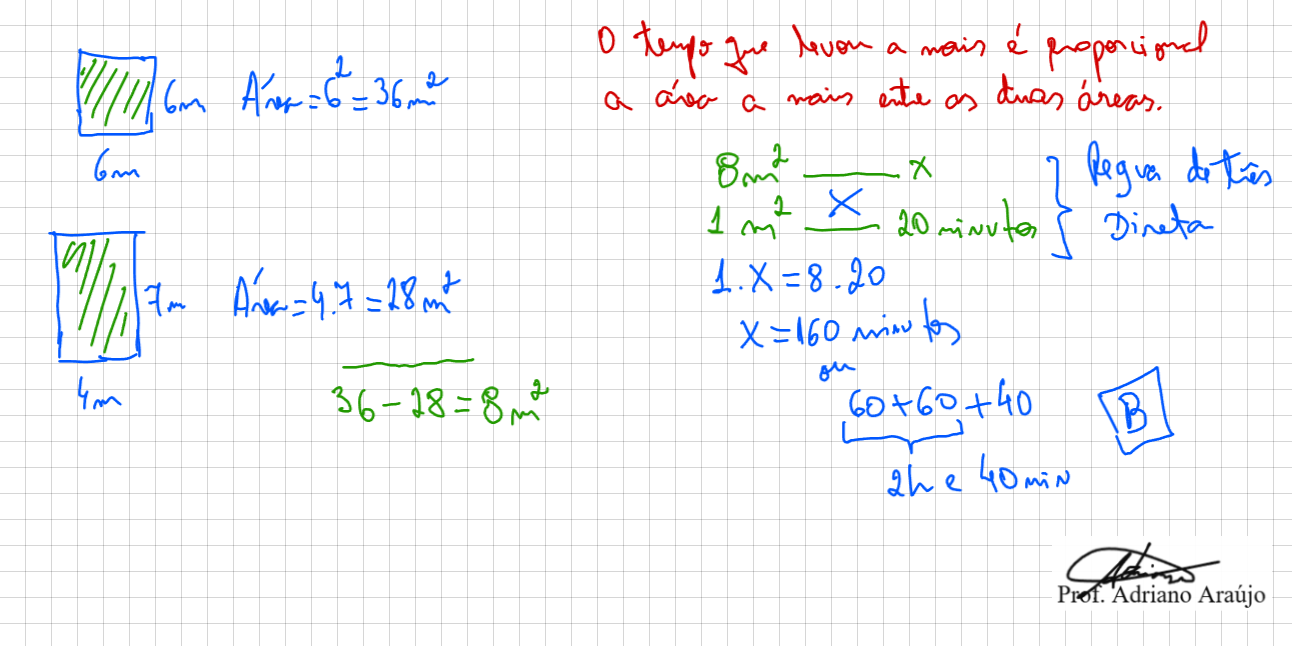 6m
Área=6²=36m²
6m
7m
Área=4.7=28m²
4m
36-28=8m²
O tempo que levou a mais é proporcional
a área a mais ente as duas áreas.
8m² x
1 m² X 20 minutos
Regra de três
Direta
1.X=8.20
X=160 minutos
ou
60+60+40
B
2h e 40min
Prof. Adriano Araújo